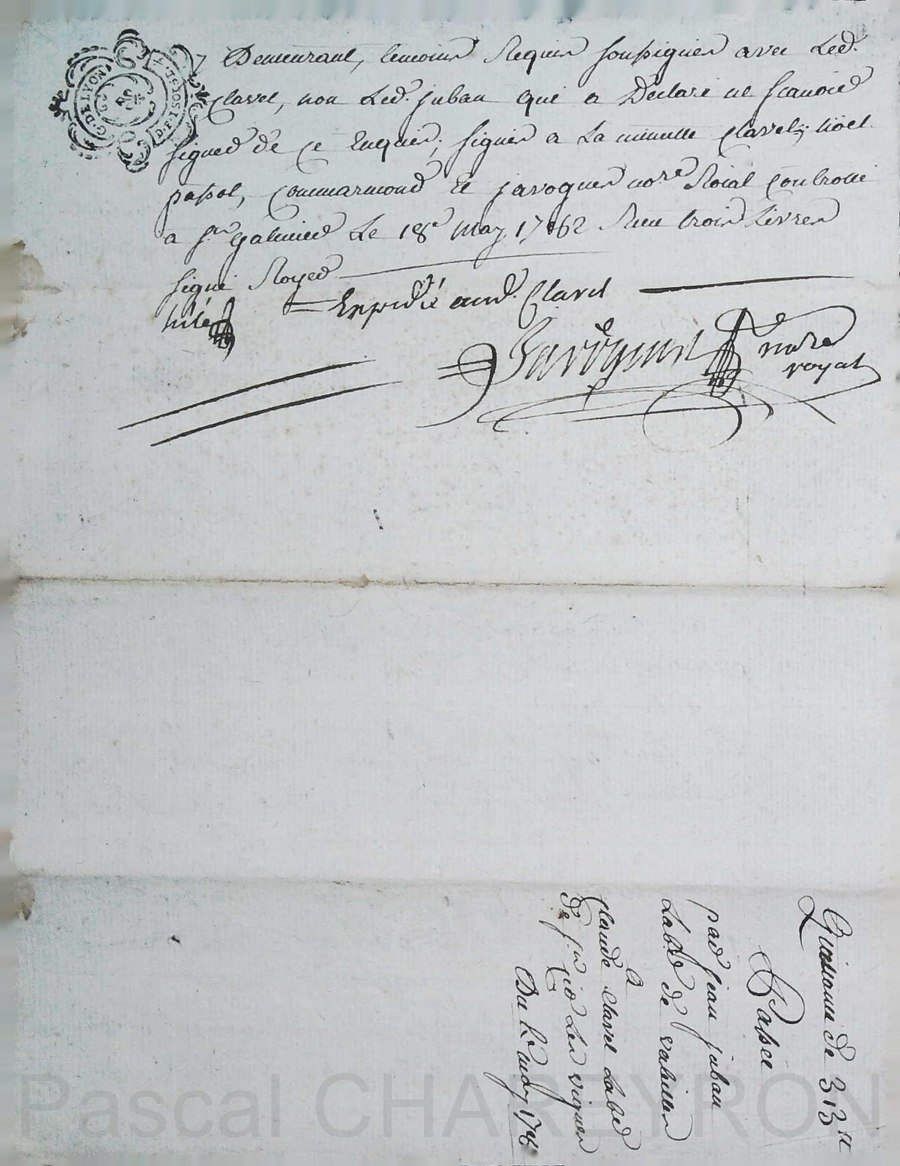 G. DE LYON
Demeurant, temoins Requis soussignés avec Led.
Clavel, non Led. juban qui a Déclaré ne scavoir
signer de ce Enquis, signés a La minutte Clavel, noel
passot, Commarmond et javogues nore. Roial Controllé
a st. galmier Le 18e. may 1762 Reçu trois Livres
signé Royer
Expedié aud. Clavel
Javogues nore
royal
Quittance de 313 tt
Passée
par jean juban
Labr. de
a
Claude Clavel Labr.
de st.
Du may 176
Pascal CHAREYRON